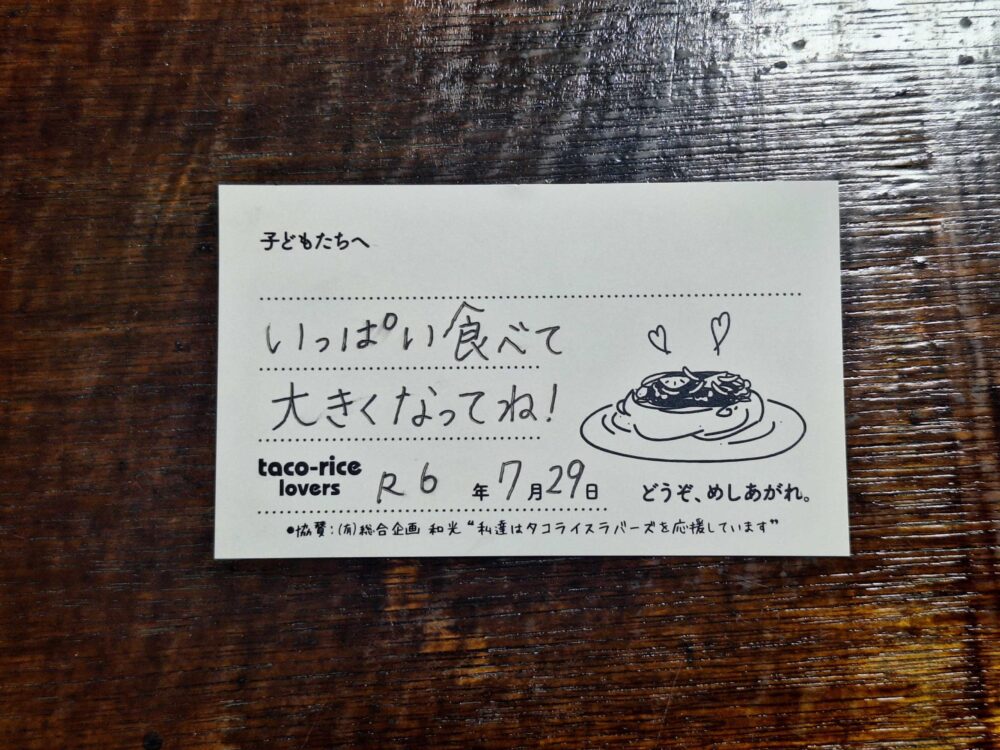 子どもたちへ
いっぱい食べて
大きくなってね!
taco-rice
lovers
R6 年 7月29日
どうぞ、めしあがれ。
●協賛:(有)総合企画 和光 “私達はタコライスラバーズを応援しています”